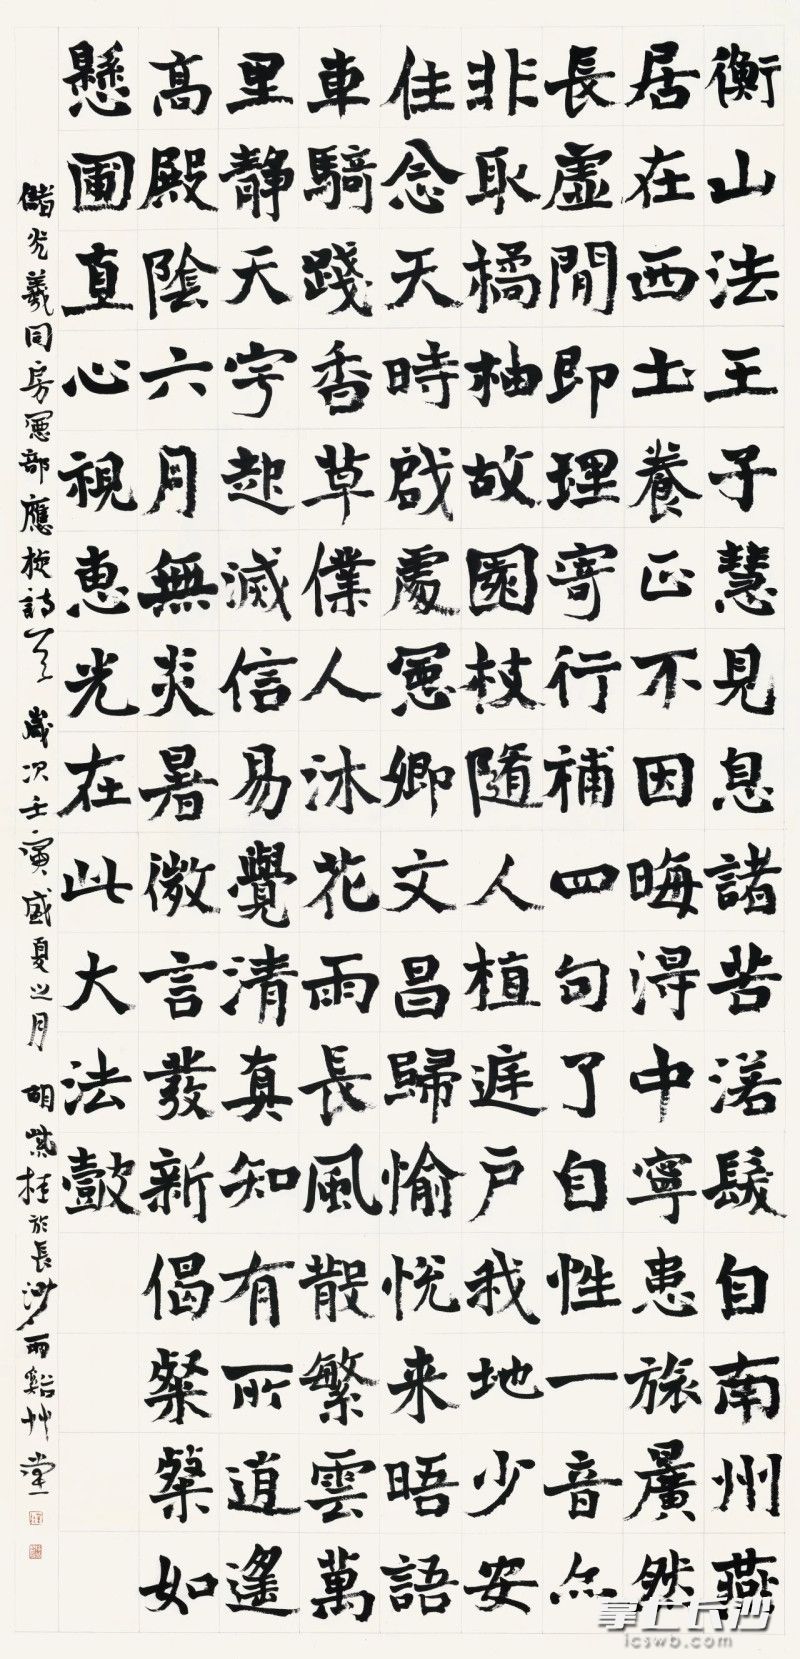 衡山法王子慧見息諸苦落髮自南州燕
居在西土養正不因晦得中寧患旅曠然
長虛閒即理寄行補四句了自性一音亦
非取橘柚故園杖隨人植庭戶我地少安
住念天時啟處憲卿文昌歸愉悅来晤語
車騎踐香草僕人沐花雨長風散繁雲萬
里靜天宇起滅信易覺清真知有所逍遙
高殿陰六月無炎暑微言發新偈粲粲如
懸圃直心視惠光在此大法鼓
儲光羲同房憲部應旋詩一首 歲次壬寅盛夏之月 胡紫桂於長沙雨谿艸堂
掌上长沙
icswb.com